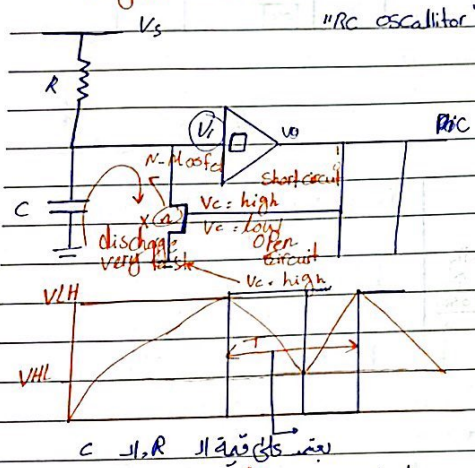 "RC oscallitor"
Vs
R
Vi
Vo
N-Mosfet
short circuit
C
Vc = high
Vc = low
open
circuit
discharge
very faste
Vc = high
VLH
T
VHL
يعتمد على قيمة ال R وال C